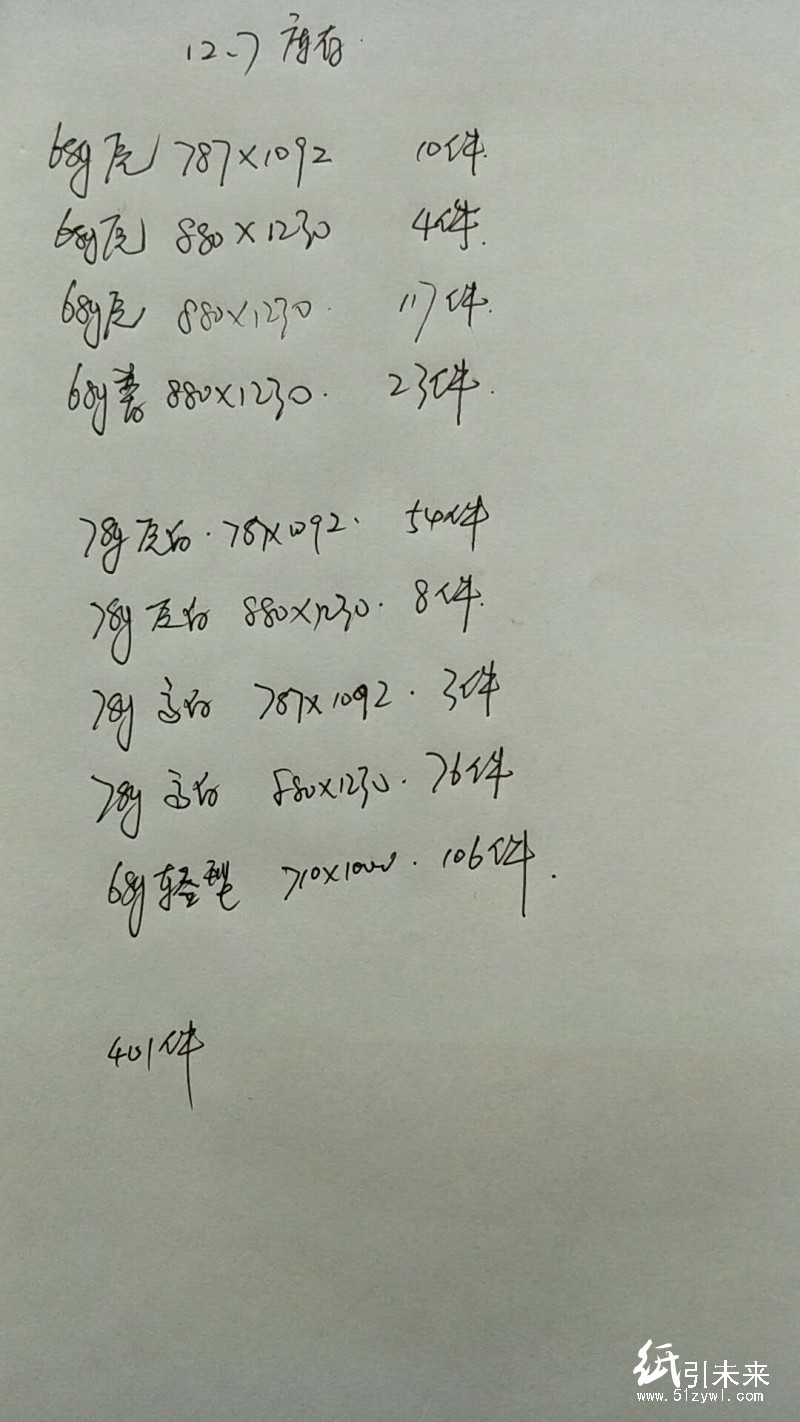 12.7 库存.
68g 虎 787×1092 10件.
68g 虎 880×1230 4件.
68g 虎 880×1230. 117件.
68g 880×1230. 23件.
78g 虎白. 787×1092. 54件
78g 虎白 880×1230. 8件.
78g 高白 787×1092. 3件
78g 高白 880×1230. 76件
68g 轻型 710×1000. 106件.
401件
纸引未来
www.51zywl.com